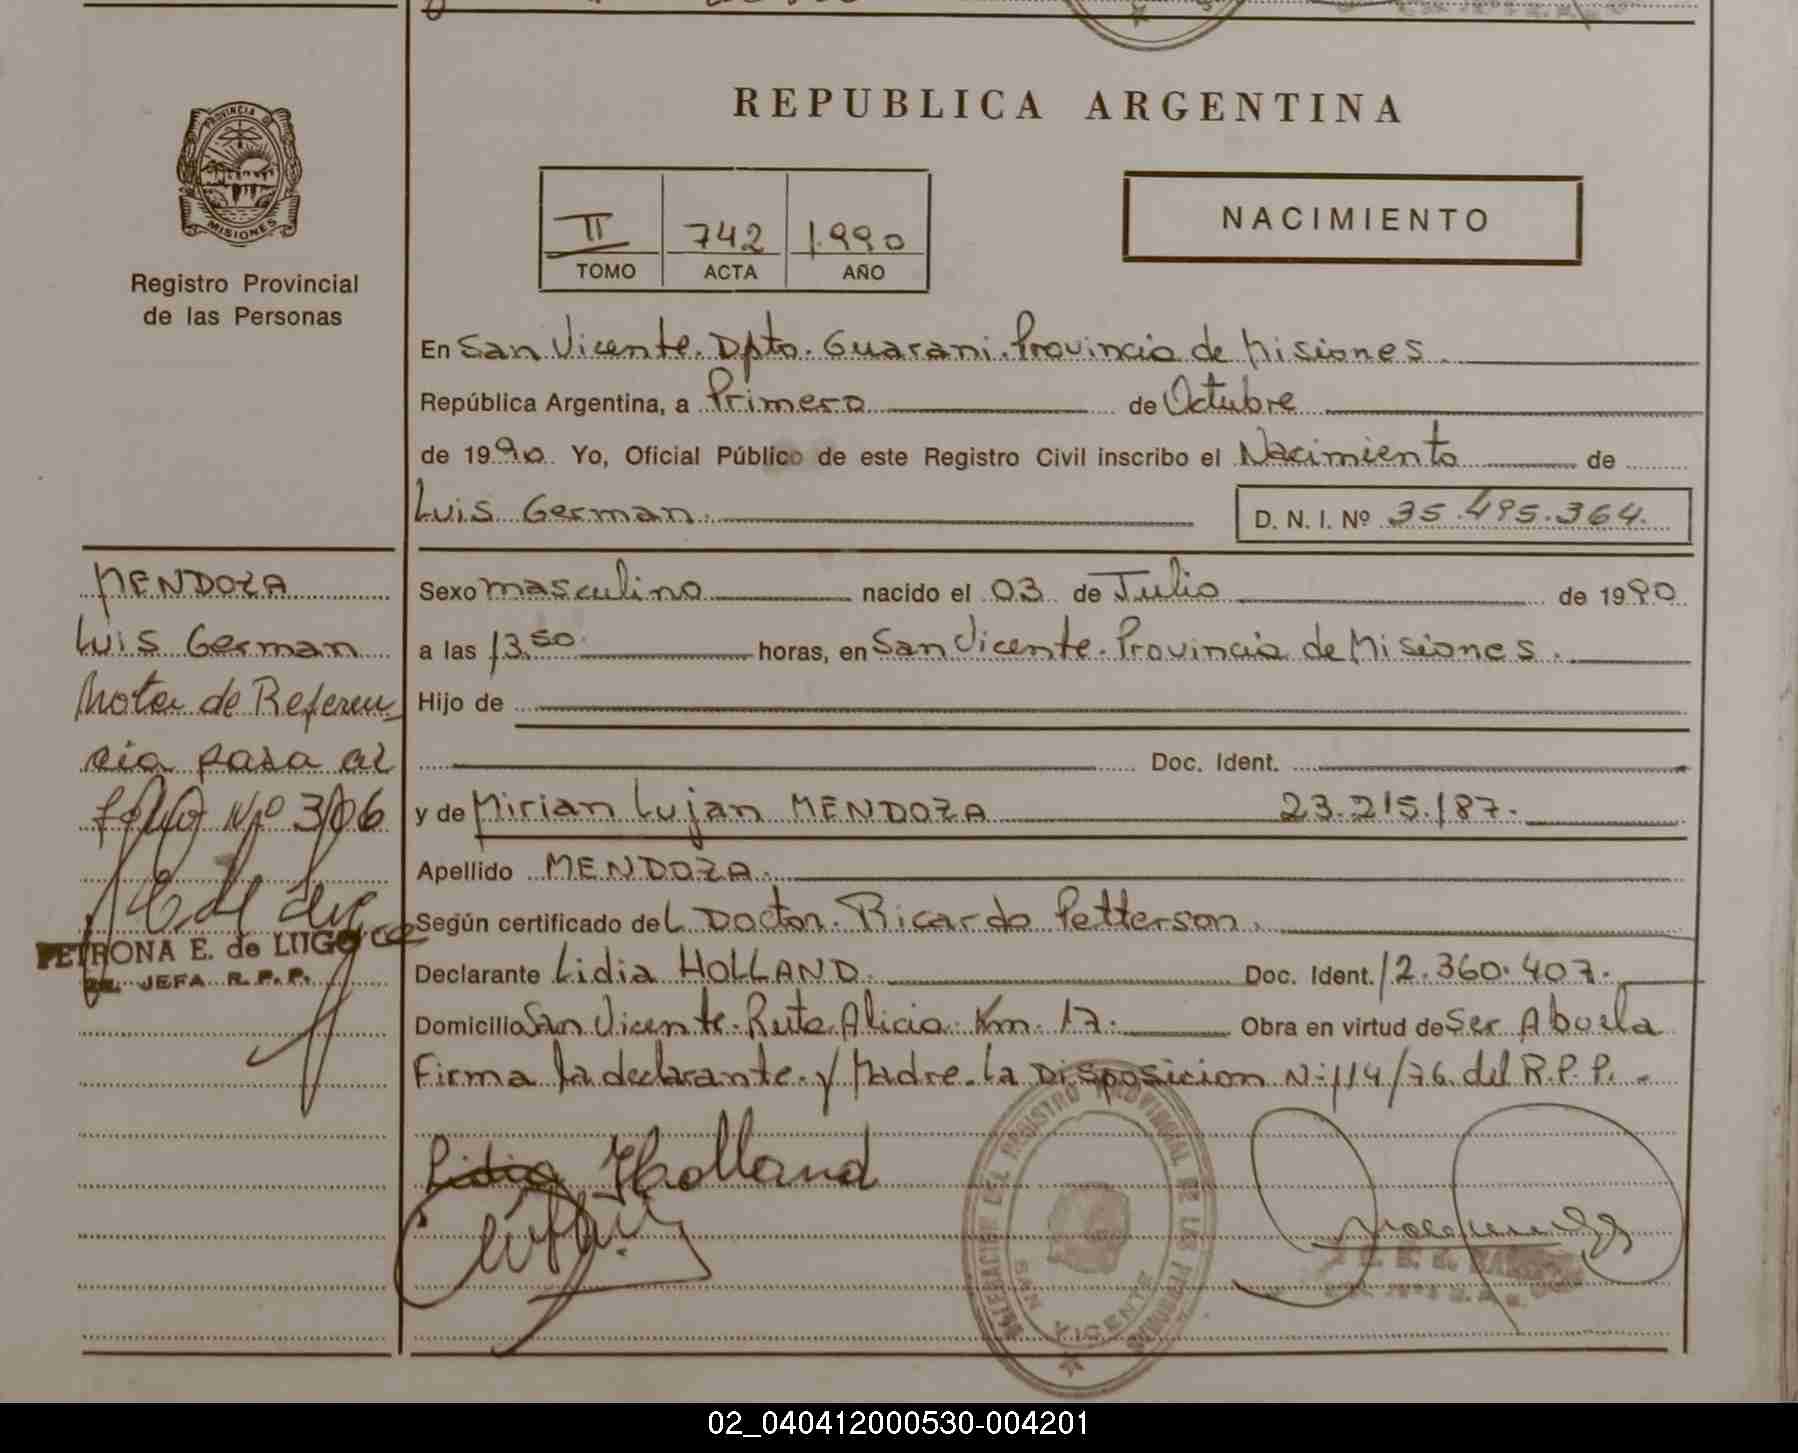 REPUBLICA ARGENTINA
PROVINCIA DE
MISIONES
Registro Provincial
de las Personas
II 742 1.990
TOMO ACTA AÑO
NACIMIENTO
En San Vicente. Dpto. Guarani. Provincia de Misiones.
República Argentina, a Primero de Octubre
de 1990. Yo, Oficial Público de este Registro Civil inscribo el Nacimiento de
Luis German. D. N. I. Nº 35.495.364.
MENDOZA
Luis German
Nota de Referen
cia pasa al
folio Nº 306
PETRONA E. de LUGO
JEFA R.P.P.
Sexo masculino nacido el 03 de Julio de 1990
a las 13.50 horas, en San Vicente. Provincia de Misiones.
Hijo de
Doc. Ident.
y de Mirian Lujan MENDOZA 23.215.187.
Apellido MENDOZA.
Según certificado del Doctor. Ricardo Petterson.
Declarante Lidia HOLLAND. Doc. Ident. 12.360.407.
Domicilio San Vicente. Ruta Alicia Km. 17. Obra en virtud de Ser Abuela
Firma la declarante y Madre. La Disposicion N:114/76 del R.P.P.
Lidia Holland
DELEGACION DEL REGISTRO PROVINCIAL DE LAS PERSONAS
SAN VICENTE
02_040412000530-004201